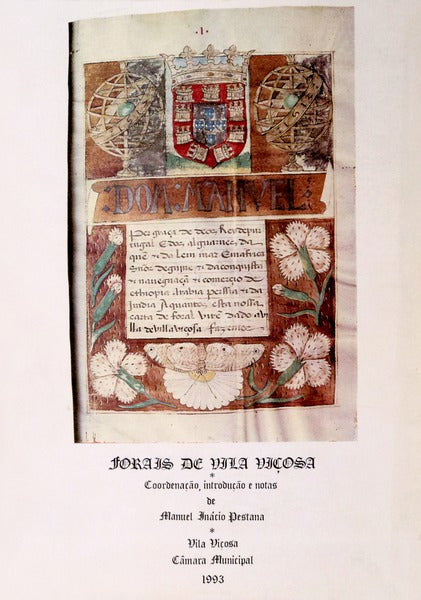 ·1·
:DOM:MANVEL:
Per graça de deos, Rey depur
tugal E dos alguarues, da
quē & da lem mar Em africa
Snōr de guine & da conquista
& nauegnaçã & comercio de
ethiopia arabia perssia & da
Jndia A quantos, esta nossa
carta de foral virē dado a vi
lla de villa viçosa fazemos
FORAIS DE VILA VIÇOSA
*
Coordenação, introdução e notas
de
Manuel Inácio Pestana
*
Vila Viçosa
Câmara Municipal
1993